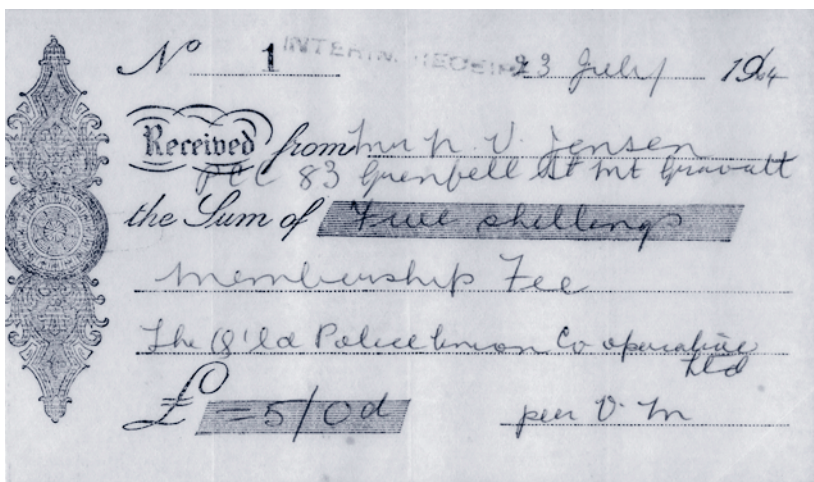 No 1 INTERIM RECEIPT 23 July 1964
Received from Mr N. V. Jensen
PCC 83 Grenfell St Mt Gravatt
the Sum of Five shillings
Membership Fee
The Q'ld Police Union Co operative
Ltd
£ =5/0d per V. M